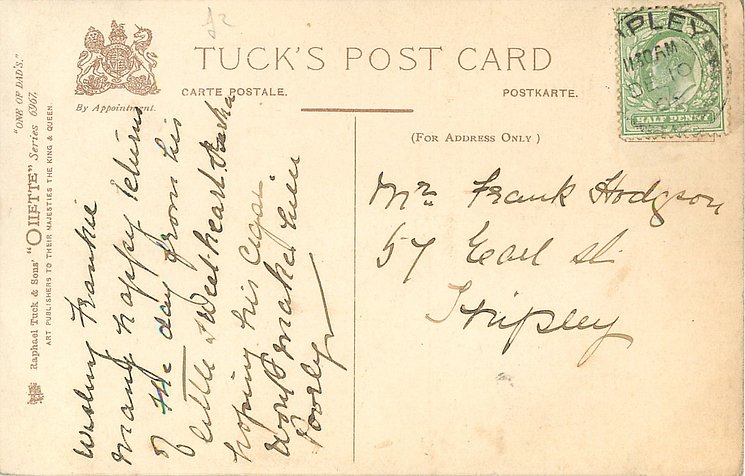 "ONE OF DAD'S."
Raphael Tuck & Sons' "OILETTE" Series 6367.
ART PUBLISHERS TO THEIR MAJESTIES THE KING & QUEEN.
By Appointment.
TUCK'S POST CARD
CARTE POSTALE.
POSTKARTE.
(FOR ADDRESS ONLY)
HALF PENNY
IPLEY
11 30 AM
DE 10
Wishing Frankie
many happy returns
of the day from his
little Sweetheart
hoping his cigar
won't make him
Poorly
Mr. Frank Hodgson
57 Earl St
Shipley